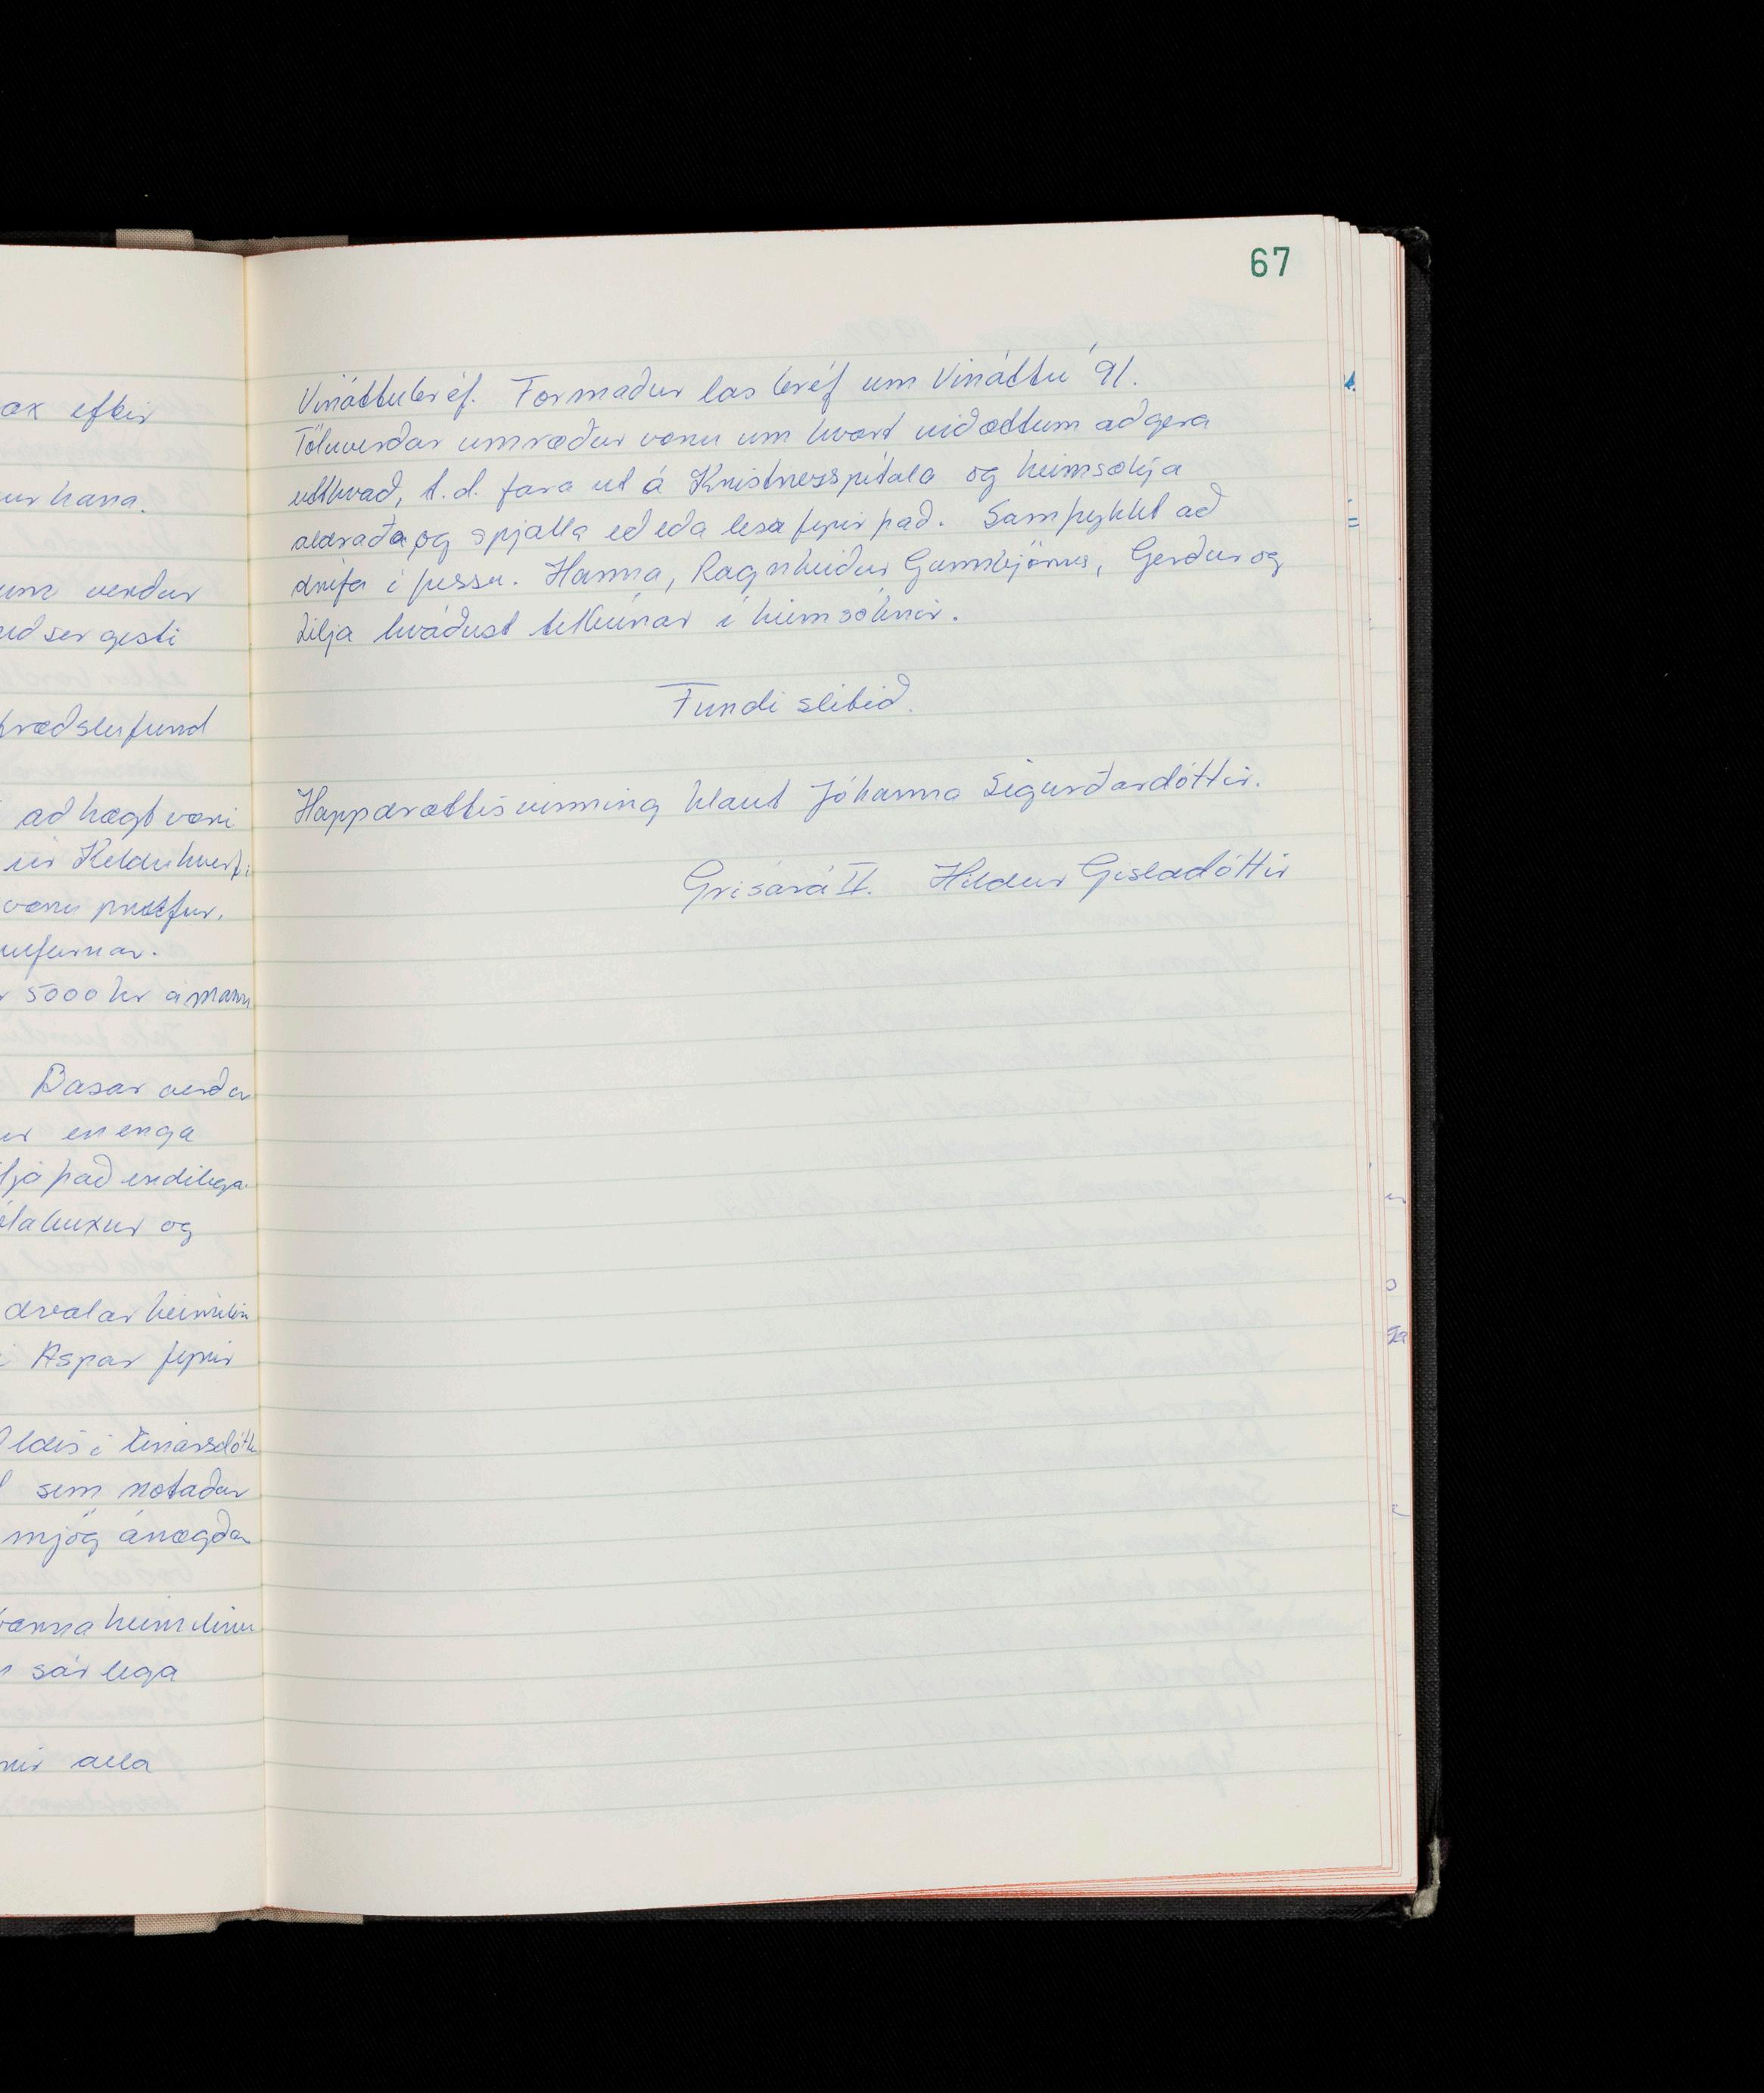 ax eftir
ur hana.
um verður
að ser gesti
fræðslufund
að hægt væri
úr Kelduhverfi
voru prúttur.
ulfurnar.
5000 kr á mann
Basar verða
er en enga
það endilega
buxur og
dvalar heimilin
i Aspar fyrir
sem notaðar
mjög ánægða
sár lega
alla
67
Vináttubréf. Formaður las bréf um Vináttu '91.
Töluverðar umræður voru um hvort við ættum að gera
eitthvað, t.d. fara út á Kristnesspítala og heimsækja
aldraða og spjalla eð eða lesa fyrir það. Samþykkt að
drífa í þessu. Hanna, Ragnheiður Gunnbjörns, Gerður og
Lilja kváðust tilbúnar í heimsóknir.
Fundi slitið.
Happdrættisvinning hlaut Jóhanna Sigurðardóttir.
Grísará II. Hildur Gísladóttir